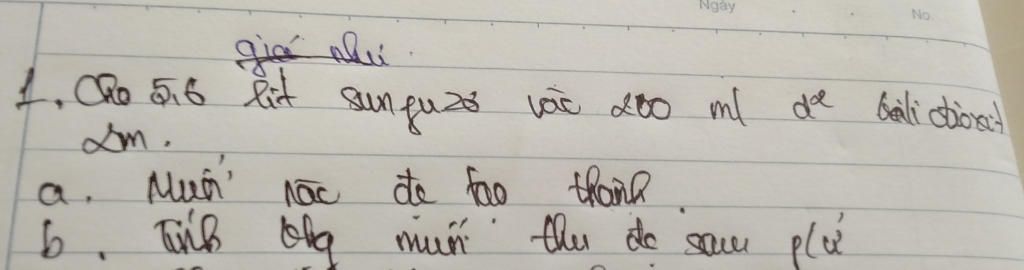 Ngày
No.
giá như
1. Cho 5,6 lít sunfuzơ vào 200 ml d² Kali hiđroxit
2m.
a. Muối nào đc tạo thành.
b. Tính klg muối thu đc sau p/ứ